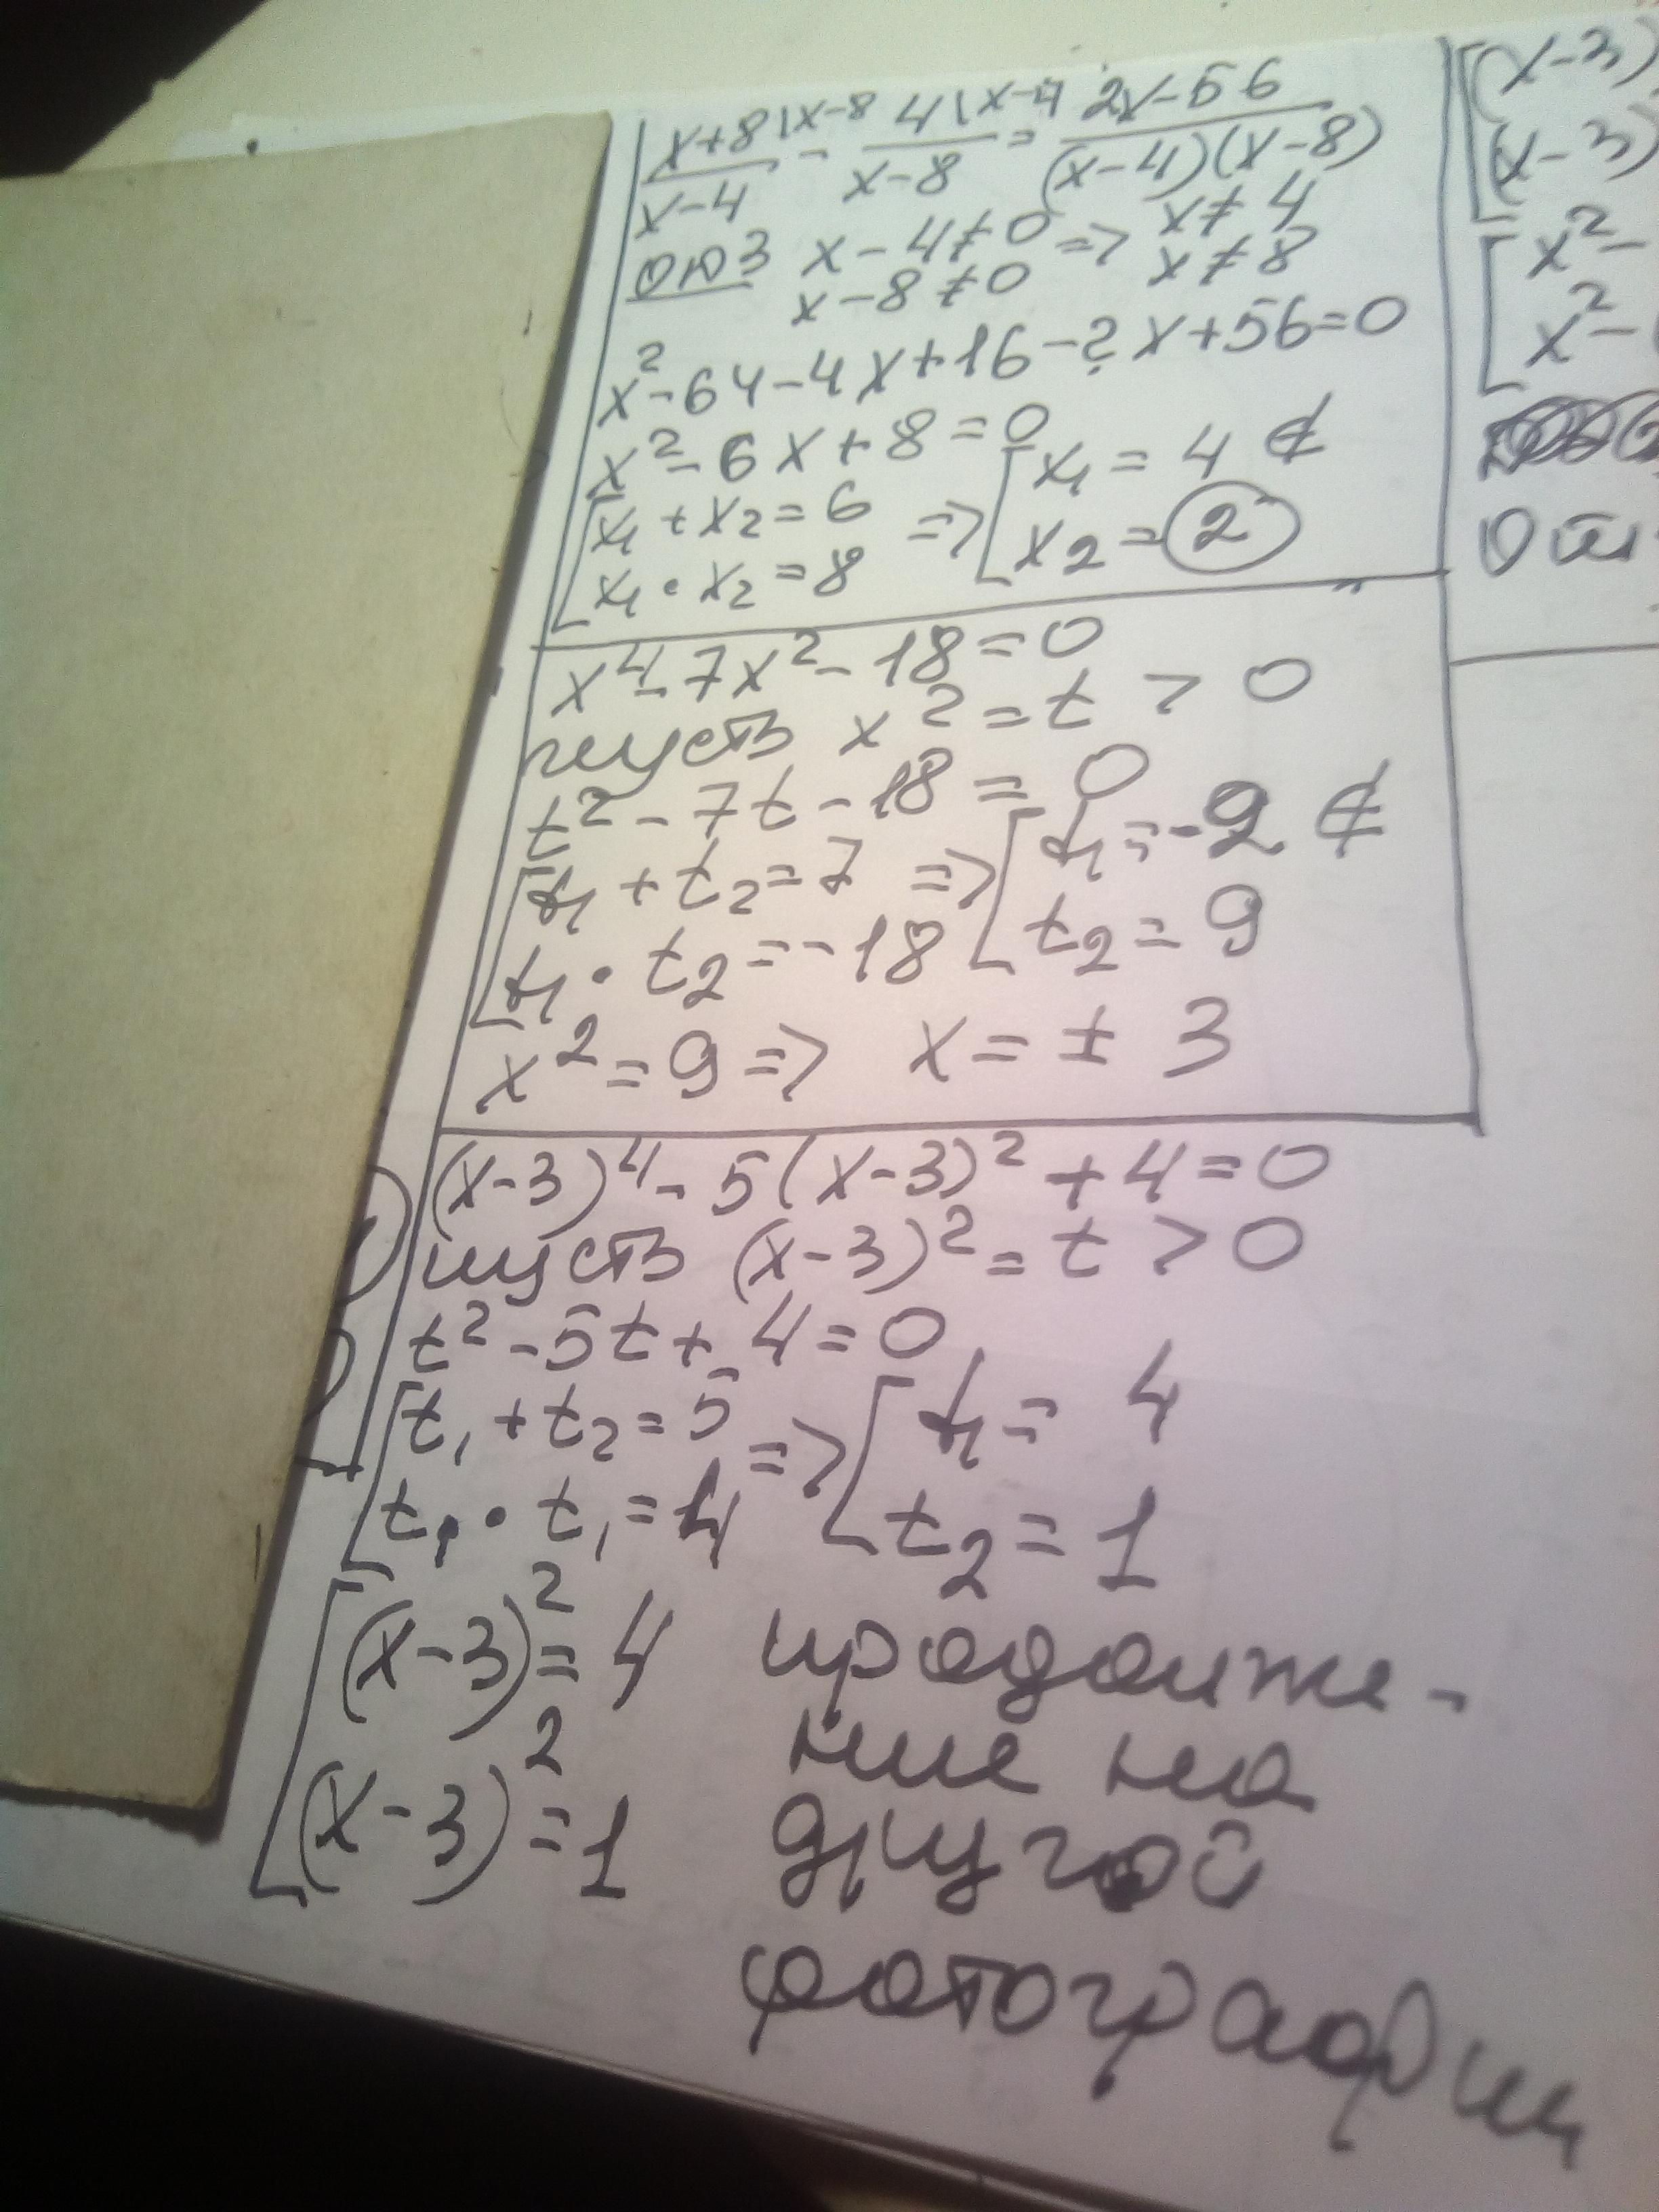 x+8\x-8 / x-4 - 4\x-4 / x-8 = 2x-56 / (x-4)(x-8)
ОДЗ x-4≠0 => x≠4
x-8≠0 x≠8
x²-64-4x+16-2x+56=0
x²-6x+8=0
[x₁+x₂=6 => [x₁=4 ∉
x₁·x₂=8 x₂=2
x⁴-7x²-18=0
пусть x²=t > 0
t²-7t-18=0
[t₁+t₂=7 => [t₁=-2 ∉
t₁·t₂=-18 t₂=9
x²=9 => x=±3
(x-3)⁴-5(x-3)²+4=0
пусть (x-3)²=t>0
t²-5t+4=0
[t₁+t₂=5 => [t₁=4
t₁·t₁=4 t₂=1
[(x-3)²=4
(x-3)²=1
продолже-
ние на
другой
фотографии
[(x-3)
(x-3)
[x²-
x²-